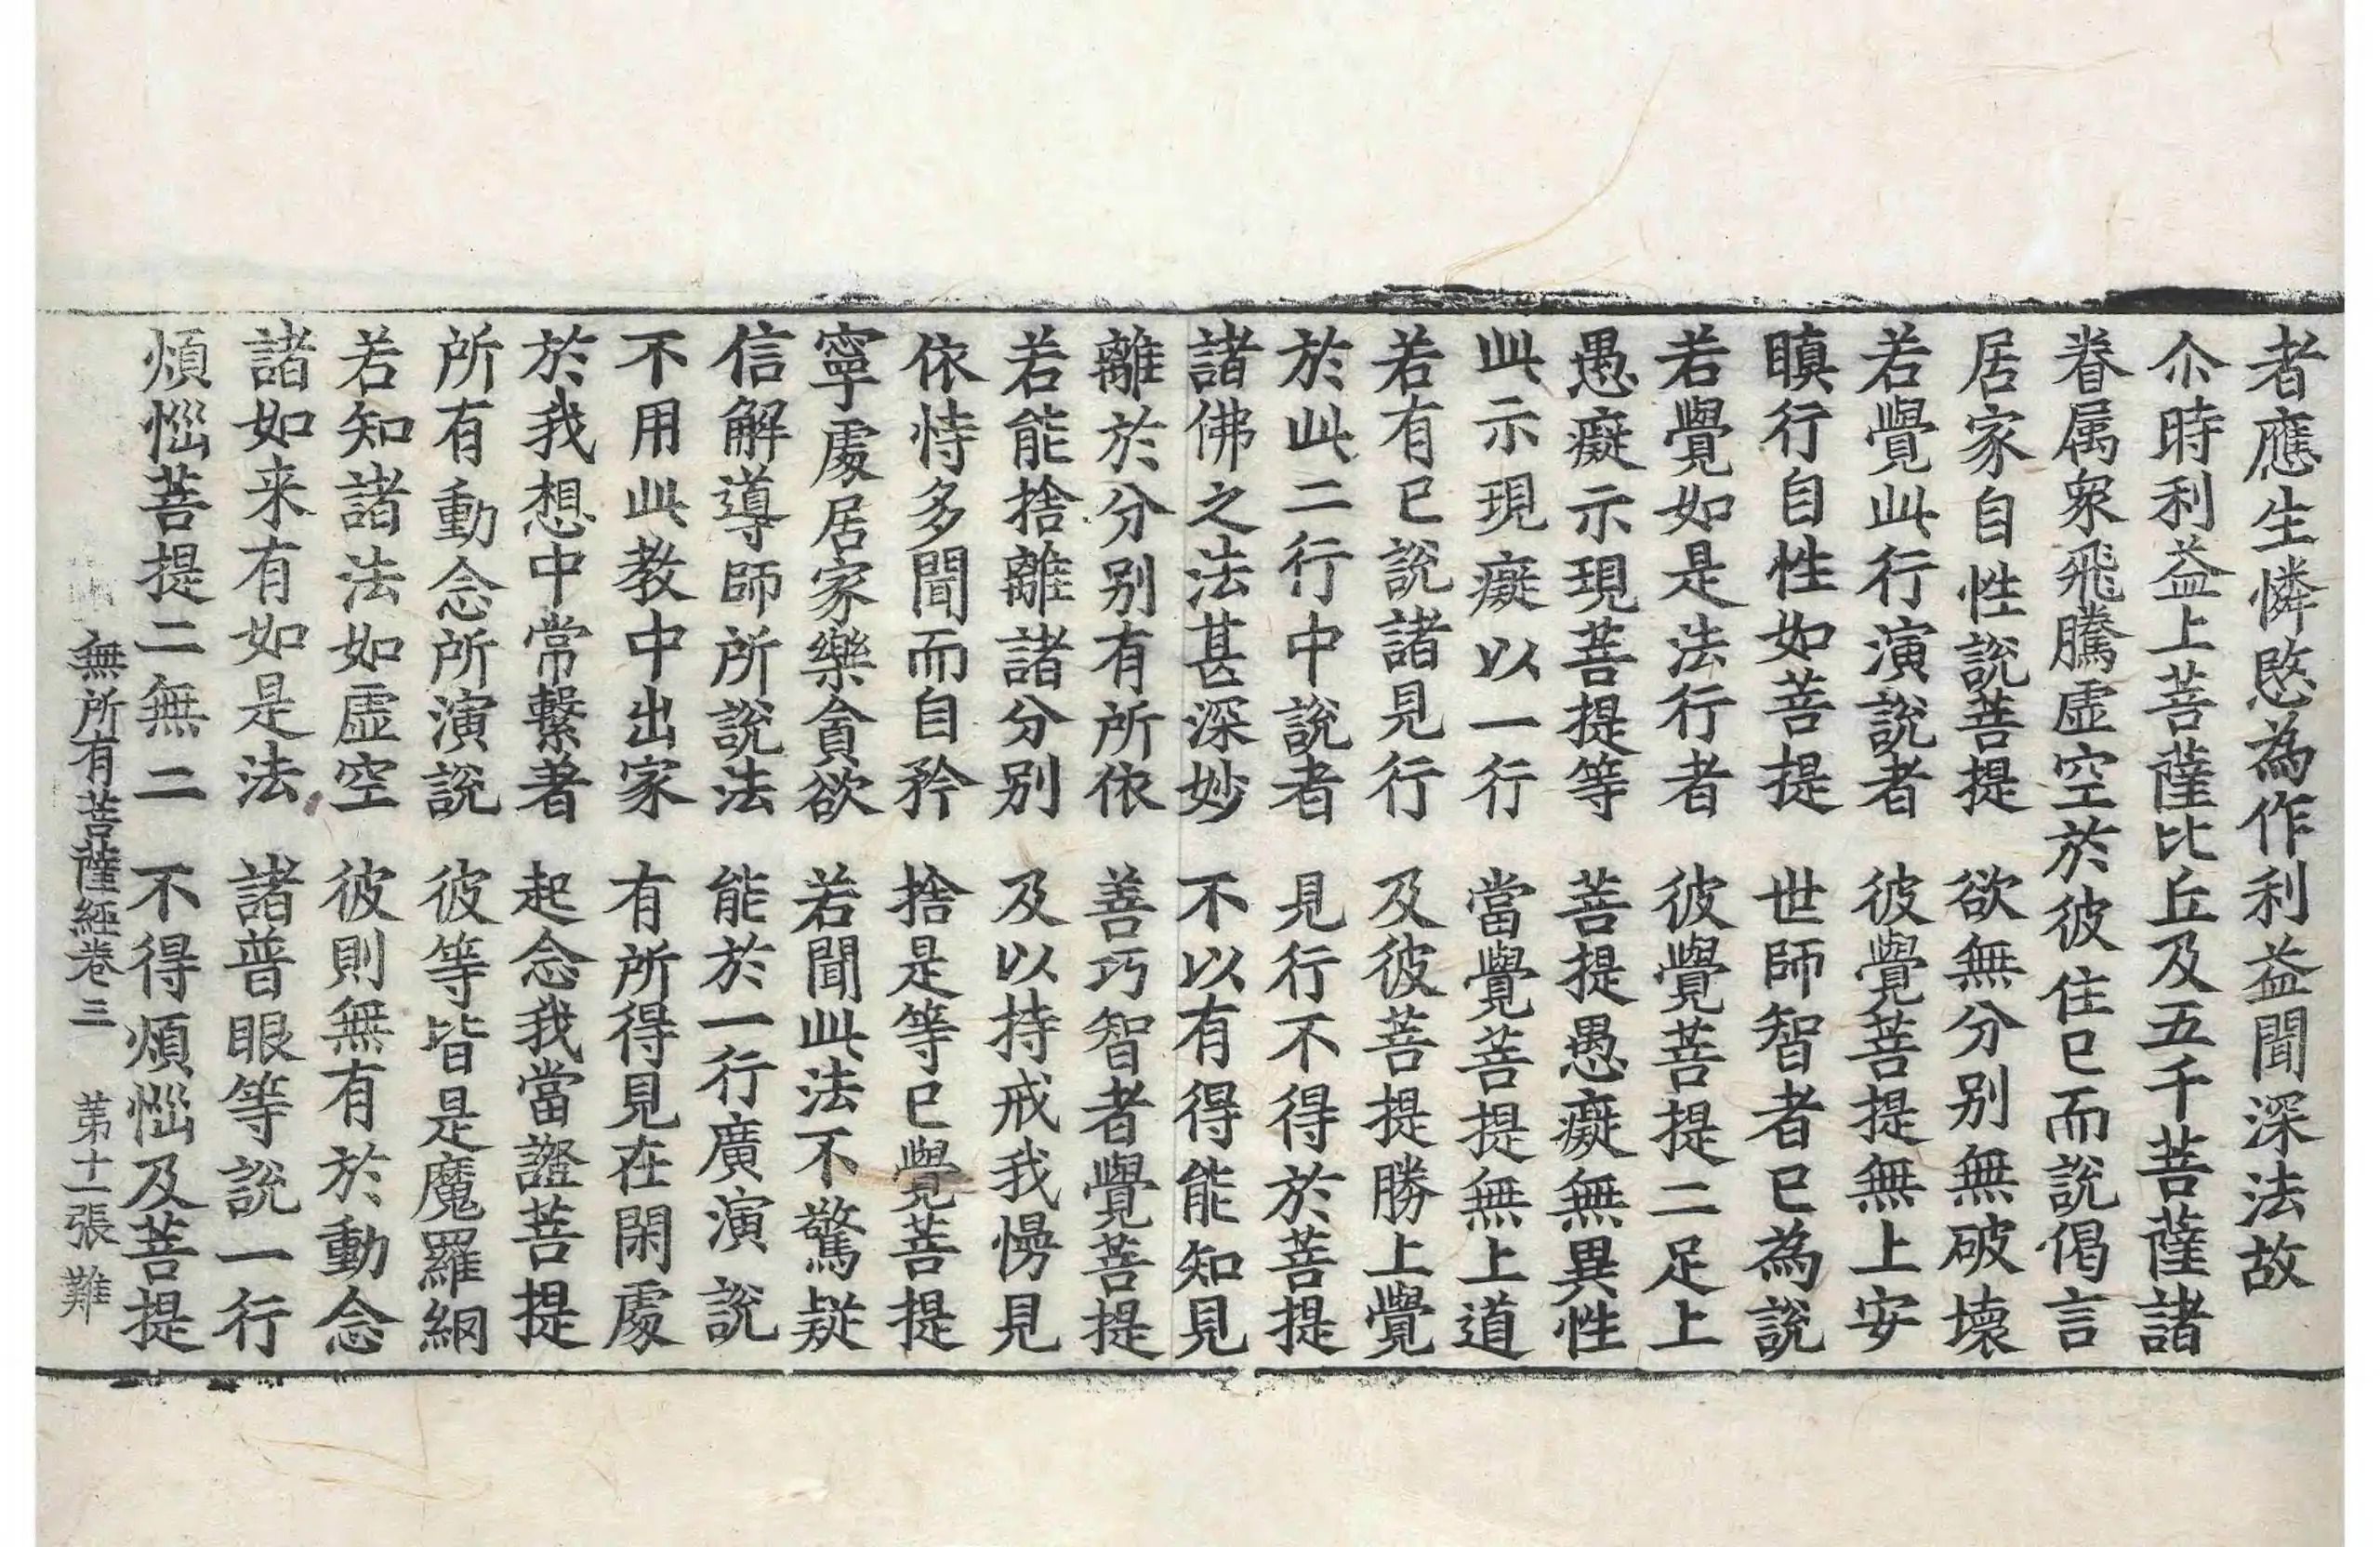 者應生憐愍為作利益聞深法故
尒時利益上菩薩比丘及五千菩薩諸
眷属衆飛騰虛空於彼住已而說偈言
居家自性說菩提　欲無分别無破壞
若覺此行演說者　彼覺菩提無上安
瞋行自性如菩提　世師智者已為說
若覺如是法行者　彼覺菩提二足上
愚癡示現菩提等　菩提愚癡無異性
此示現癡以一行　當覺菩提無上道
若有已說諸見行　及彼菩提勝上覺
於此二行中說者　見行不得於菩提
諸佛之法甚深妙　不以有得能知見
離於分别有所依　善巧智者覺菩提
若能捨離諸分别　及以持戒我慢見
依恃多聞而自矜　捨是等已覺菩提
寧處居家樂貪欲　若聞此法不驚疑
信解導師所說法　能於一行廣演說
不用此教中出家　有所得見在閑處
於我想中常繫著　起念我當證菩提
所有動念所演說　彼等皆是魔羅網
若知諸法如虛空　彼則無有於動念
諸如来有如是法　諸普眼等說一行
煩惱菩提二無二　不得煩惱及菩提
無所有菩薩經卷三　苐十一張　難